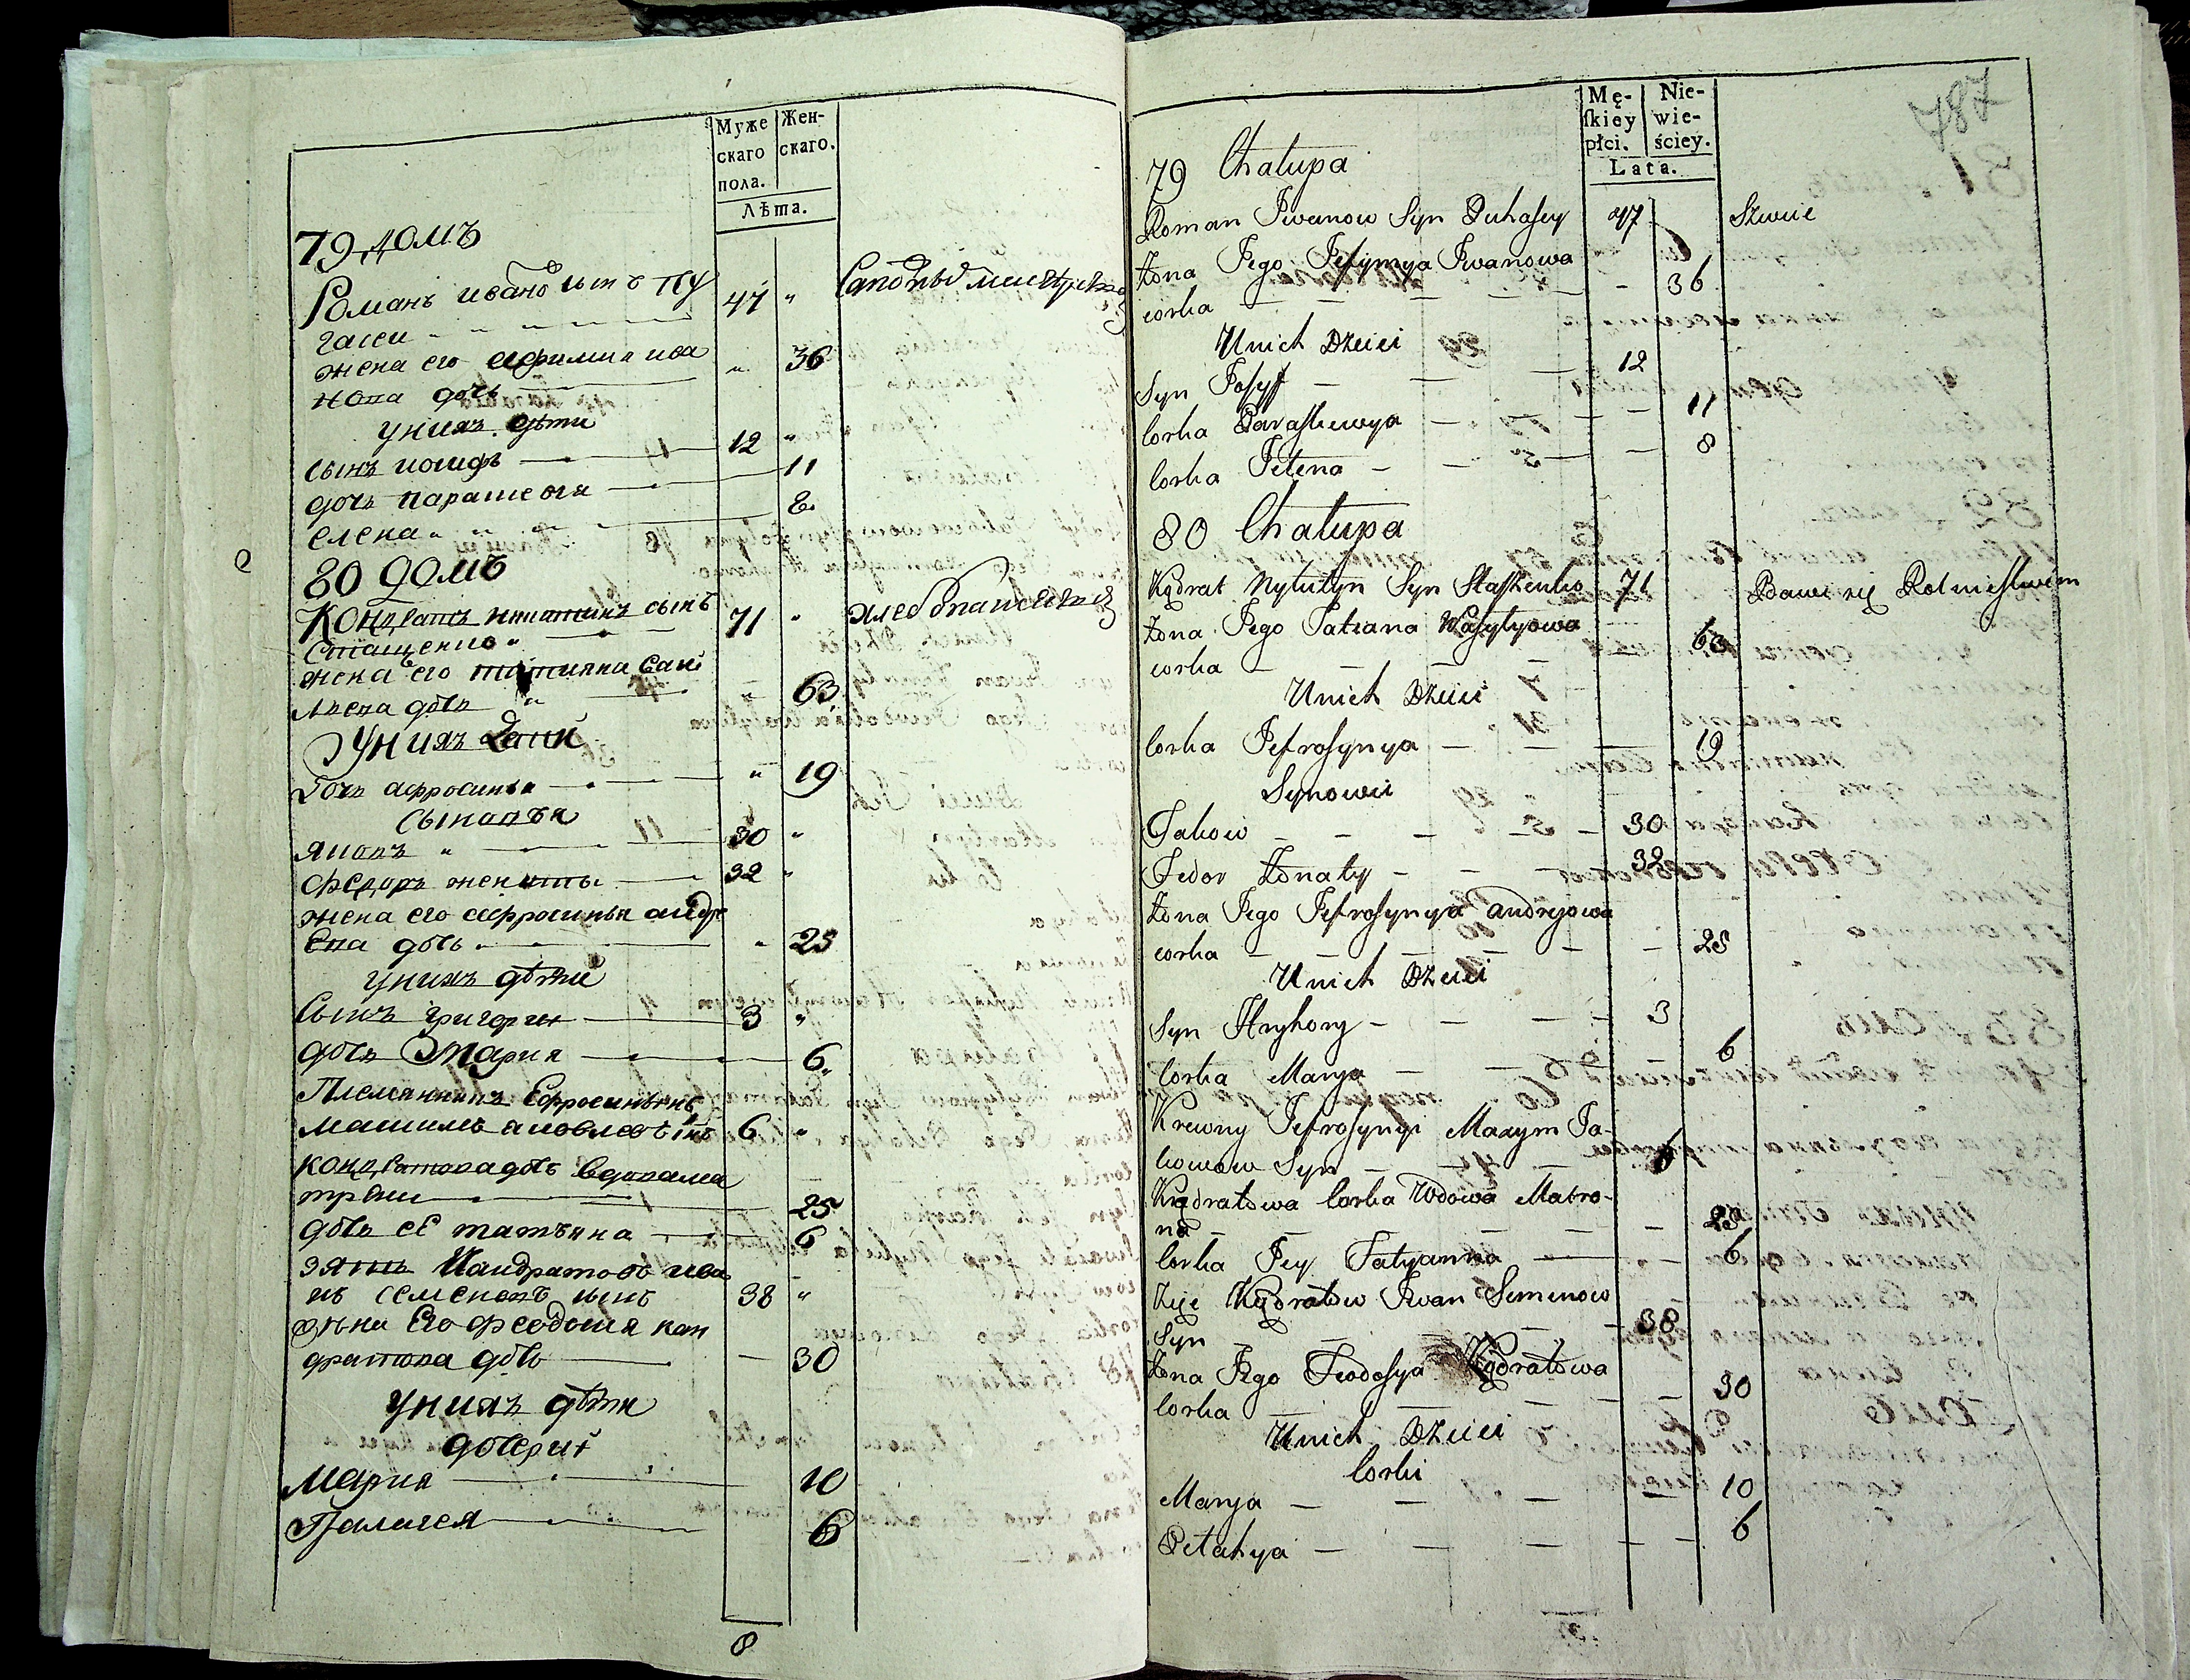 Муже
скаго
пола.
Жен-
скаго.
Лѣта.
79 домъ
Романъ ивановъ сынъ Пу
гачеи 47 "
жена его афимия ива
нова дочь " 36
у нихъ дѣти
сынъ иосифъ 12 "
дочь парашевья 11
елена 8
80 домъ
Кондратъ никитинъ сынъ 71 " хлебопашествомъ
Стащенко
жена его татияна васи
лиева дочь " 63
У нихъ дети
Дочь афросинья " 19
Сыновья
яковъ " 30 "
федоръ женаты 32 "
жена его афросинья андре
ева дочь " 25
у нихъ дѣти
Сынъ григории 3 "
дочь Мария 6
Племянникъ Ефросиньинъ
Машимъ яковлевъ снъ 6 "
кондратова дочь вдова ма
трена 25
дочь еѢ татьяна 6
зять Кандратовъ ива
нъ семеновъ сынъ 38 "
жена Его феодосия кан
дратова дочь 30
у нихъ дѣти
дочери
Мария 10
Палагея 6
8
787
Mę-
ſkiey
płci.
Nie-
wie-
ściey.
Lata.
79 Chałupa
Roman Iwanow Syn Puhasey 47 Szewie
Żona Jego Jefymya Iwanowa
corka — 36
U nich Dzieci
Syn Josyff — 12
Corka Paraskewya — 11
Corka Jelena — 8
80 Chałupa
Kądrat Nykityn Syn Staszenko 71 Bawi się Rolnictwem
Żona Jego Tatiana Wasylyowa
corka — 63
U nich Dzieci
Corka Jefrosynya — 19
Synowie
Jakow — 30
Fedor Żonaty — 32
Żona Jego Jefrosynya Andrejowa
corka — 25
U nich Dzieci
Syn Hryhory — 3
Corka Marya — 6
Krewny Jefrosynyi Maxym Ja-
kowow Syn — 6
Kądratowa Corka Wdowa Matro-
na — 25
Corka Jey Tatyanna — 6
Zięć Kądratow Iwan Semenow
Syn — 38
Żona Jego Feodosya Kądratowa
Corka — 30
U nich Dzieci
Corki
Marya — 10
Pelahya — 6